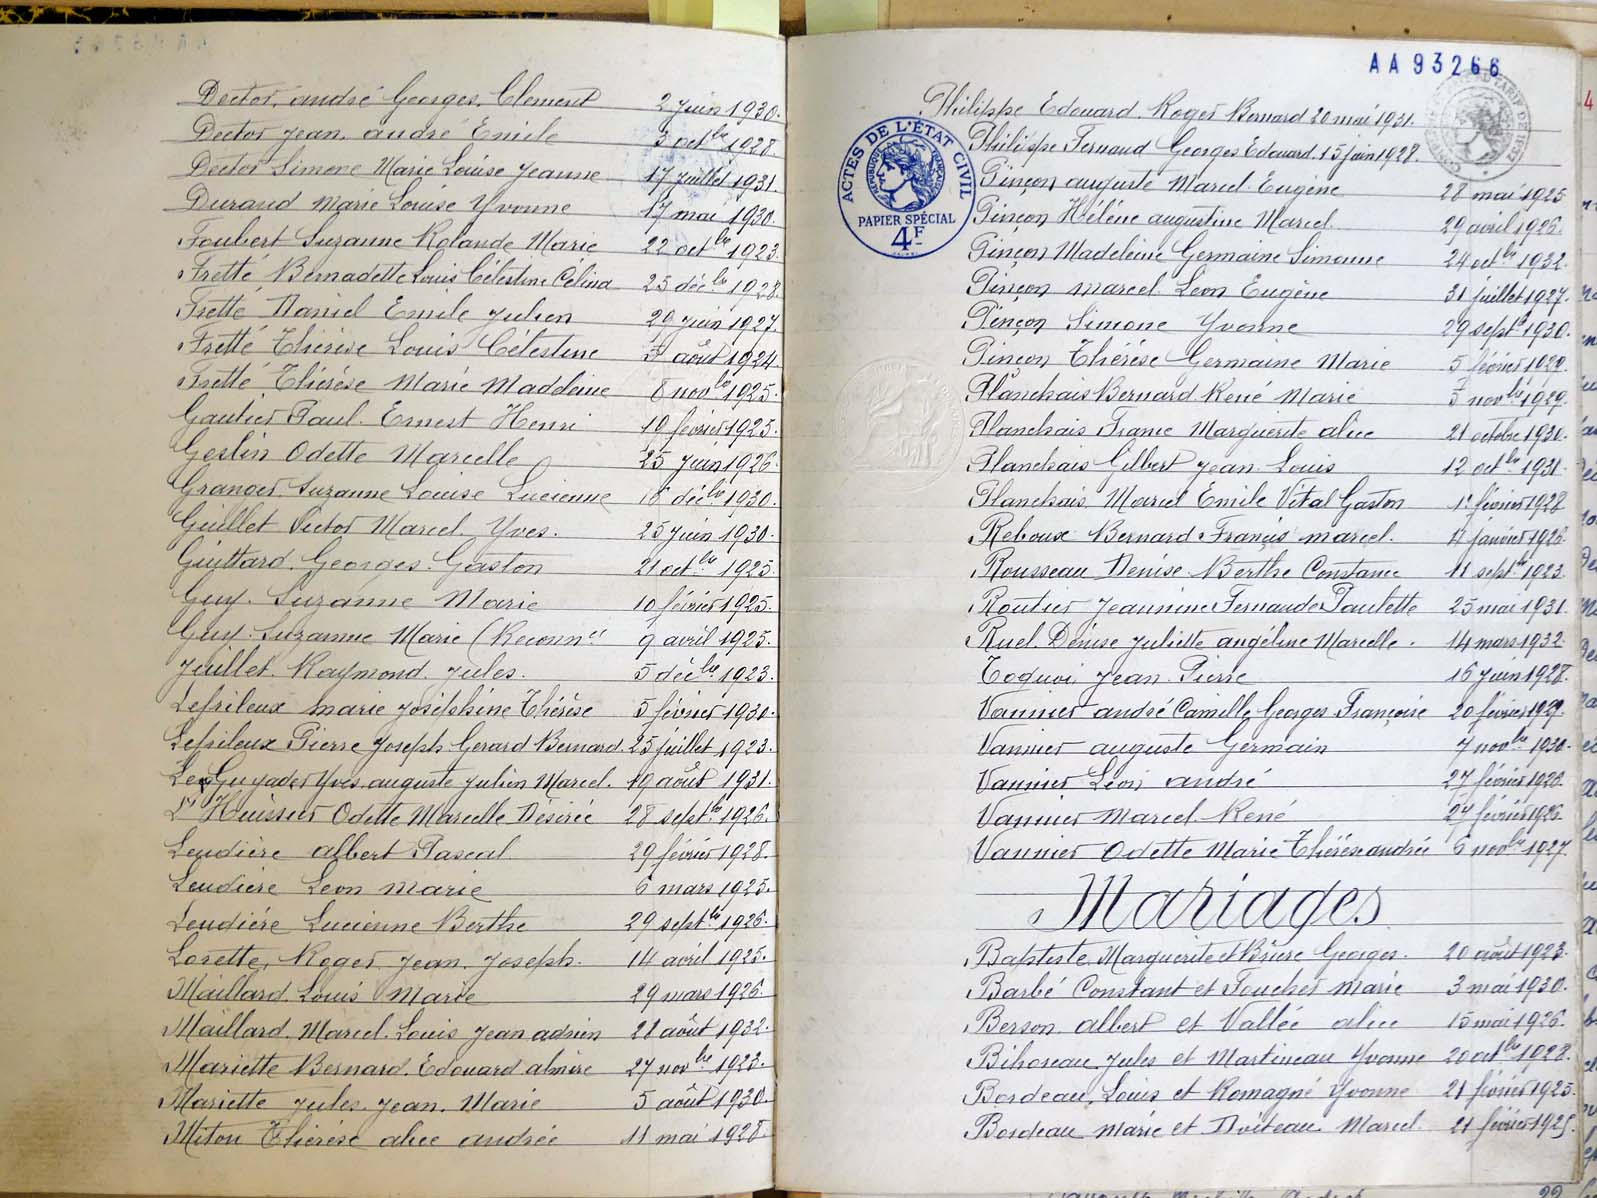 Doctor André Georges Clément 2 juin 1930.
Doctor Jean André Emile 3 octbre 1928.
Doctor Simone Marie Louise Jeanne 17 juillet 1931
Durand Marie Louise Yvonne 17 mai 1930.
Foubert Suzanne Rolande Marie 22 octbre 1923.
Fretté Bernadette Louis Célestine Célina 25 décbre 1928.
Fretté Daniel Emile Julien 29 juin 1927.
Fretté Thérèse Louis Célestine août 1924.
Fretté Thérèse Marie Madeleine 8 novbre 1925.
Gautier Paul Ernest Henri 10 février 1925.
Geslin Odette Marcelle 25 juin 1926.
Granger Suzanne Louise Lucienne 16 décbre 1930.
Guillet Victor Marcel Yves. 25 juin 1930.
Guittard Georges Gaston 21 octbre 1925.
Guy Suzanne Marie 10 février 1925.
Guy Suzanne Marie (Reconnce 9 avril 1925.
Juillet Raymond Jules. 5 décbre 1923.
Lefrileux Marie Joséphine Thérèse 5 février 1930.
Lefrileux Pierre Joseph Gerard Bernard 25 juillet 1923.
Le Guyader Yves Auguste Julien Marcel. 10 août 1931.
L'Huissier Odette Marcelle Désirée 28 septbre 1926.
Leudière Albert Pascal 29 février 1928.
Leudière Leon Marie 6 mars 1925.
Leudière Lucienne Berthe 29 septbre 1926.
Losette, Roger Jean Joseph. 14 avril 1925.
Maillard Louis Marie 29 mars 1926.
Maillard Marcel Louis Jean Adrien 21 août 1932.
Mariette Bernard Edouard 27 novbre 1923.
Mariette Jules Jean Marie 5 août 1930.
Miton Thérèse Alice Andrée 11 mai 1928.
AA93266
Philippe Edouard Roger Bernard 20 mai 1931.
Philippe Fernand Georges Edouard. 15 juin 1928.
ACTES DE L'ÉTAT CIVIL
RÉPUBLIQUE FRANÇAISE
PAPIER SPÉCIAL
4F
Pinçon Auguste Marcel Eugène 28 mai 1925
Pinçon Hélène Augustine Marcel 29 avril 1926.
Pinçon Madeleine Germaine Simonne 24 octbre 1932.
Pinçon Marcel Leon Eugène 31 juillet 1927.
Pinçon Simone Yvonne 29 septbre 1930.
Pinçon Thérèse Germaine Marie 5 février 1929.
Planchais Bernard René Marie novbre 1929.
Planchais France Marguerite Alice 21 octobre 1930.
Planchais Gilbert Jean Louis 12 octbre 1931.
Planchais Marcel Emile Vital Gaston 1er février 1928
Reboux Bernard Francis Marcel. 4 janvier 1926.
Rousseau Denise Berthe Constance 11 septbre 1923.
Routier Jeannine Fernande Paulette 25 mai 1931.
Ruel Denise Juliette Angéline Marcelle. 14 mars 1932.
Toquoi Jean Pierre 16 juin 1928.
Vannier André Camille Georges Françoise 20 février 1929.
Vannier Auguste Germain 7 novbre 1930.
Vannier Léon André 27 février 1926.
Vannier Marcel René 27 février 1926.
Vannier Odette Marie Thérèse Andrée 6 novbre 1927
Mariages
Baptiste Marguerite et Brière Georges. 20 août 1923.
Barbé Constant et Foucher Marie 3 mai 1930.
Berson Albert et Vallée Alice 15 mai 1926.
Bihoreau Jules et Martineau Yvonne 20 octbre 1928.
Bordeau Louis et Romagné Yvonne 21 février 1925.
Bordeau Marie et Doiteau Marcel 21 février 1925.